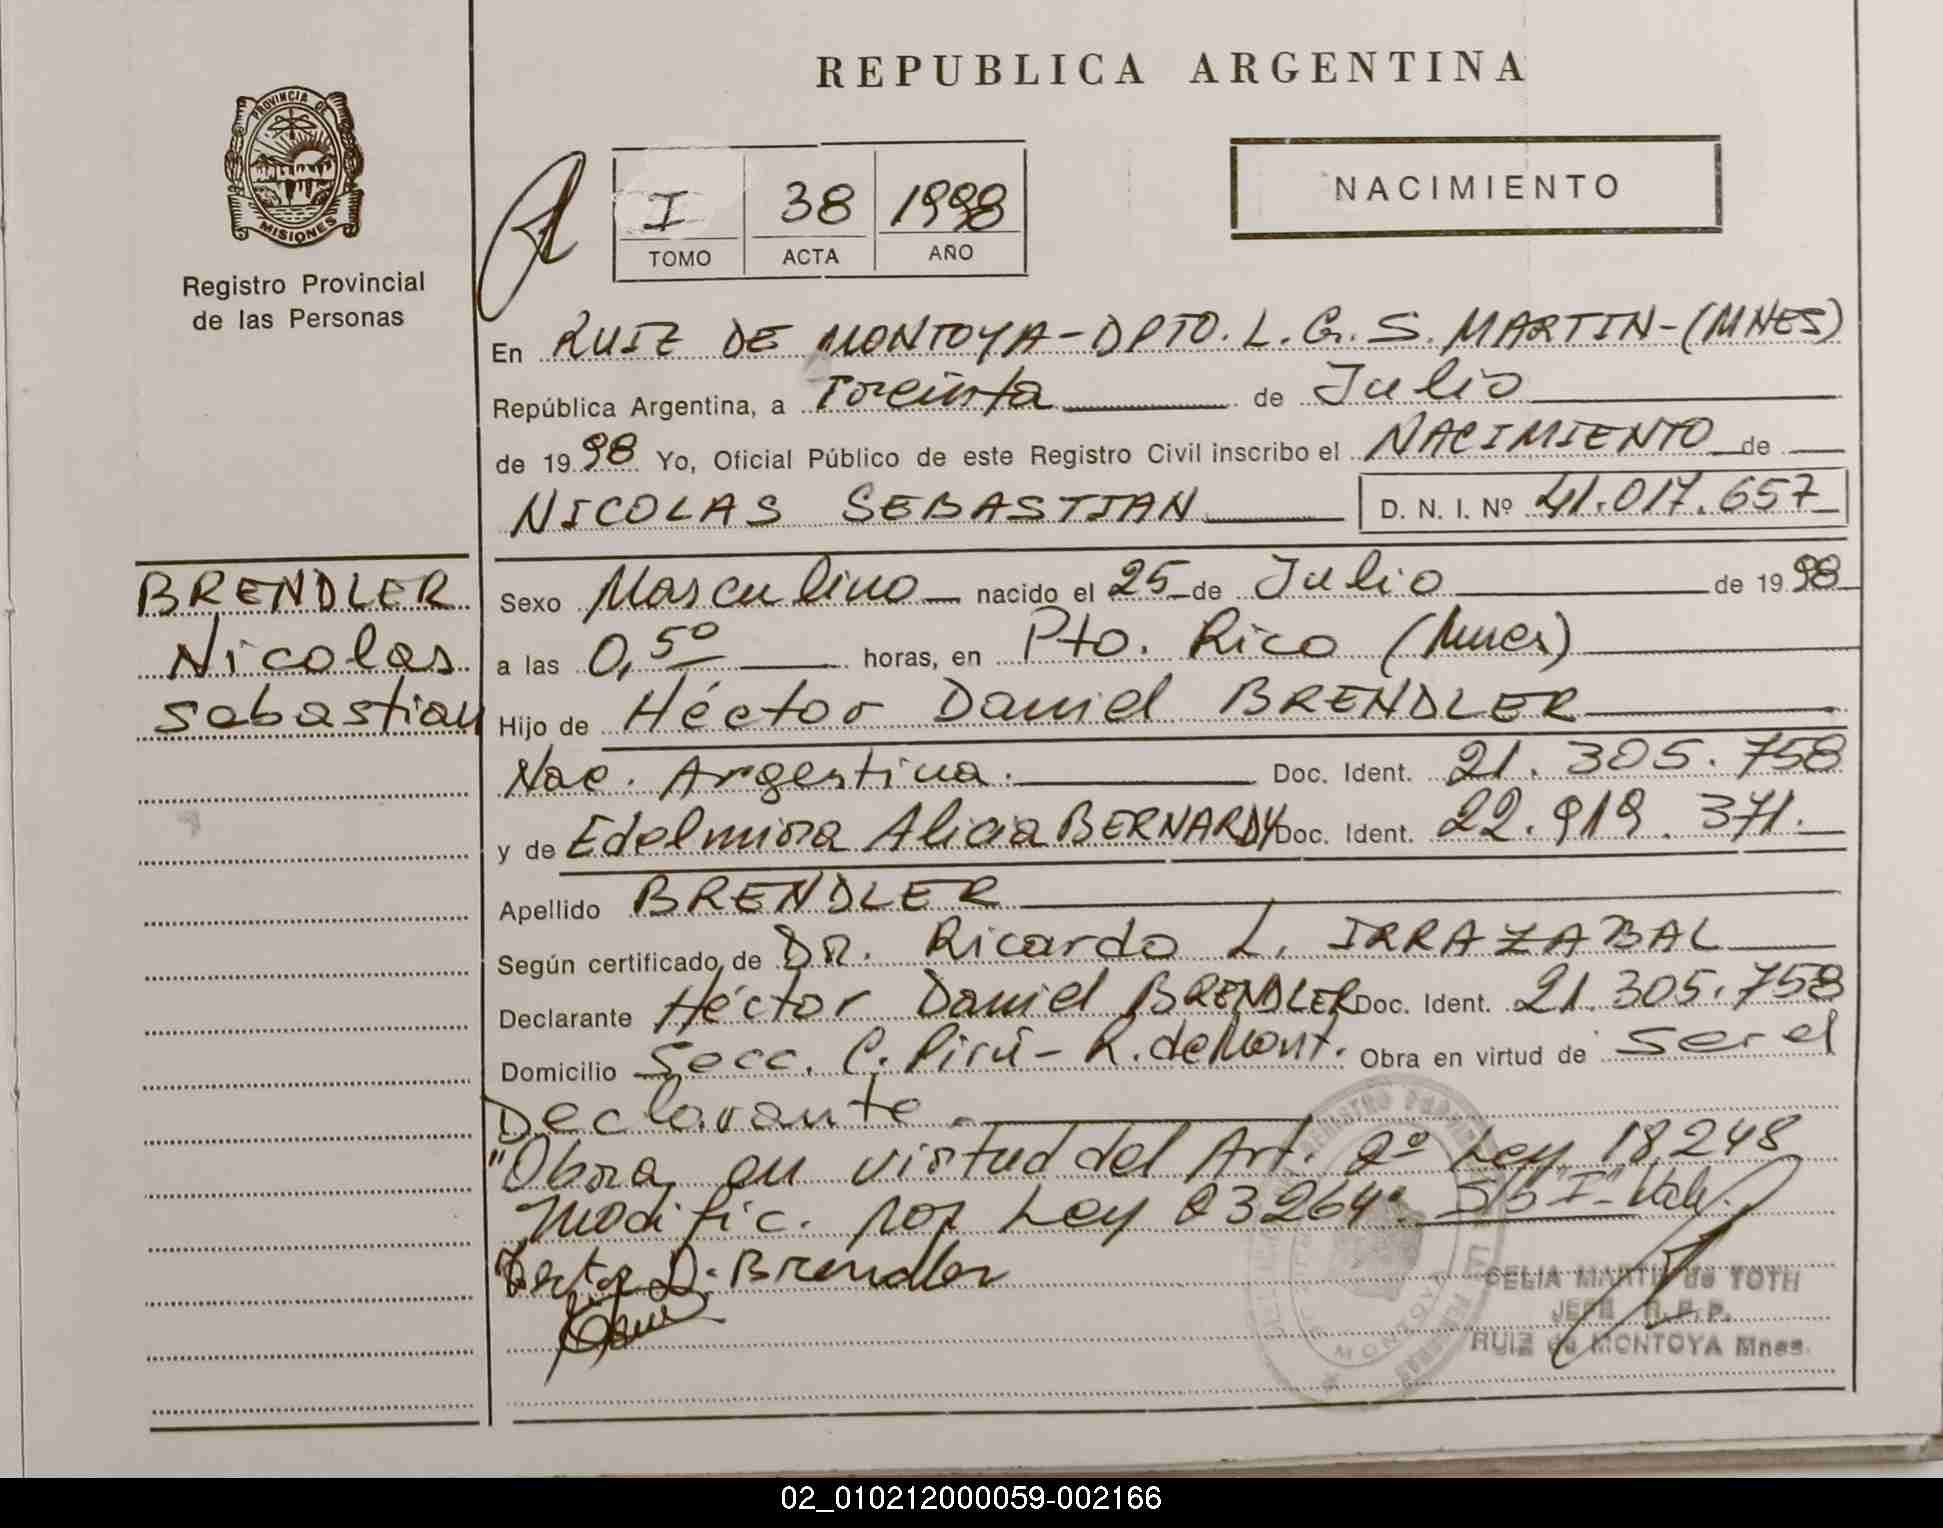 REPUBLICA ARGENTINA
PROVINCIA DE
MISIONES
Registro Provincial
de las Personas
I 38 1998
TOMO ACTA AÑO
NACIMIENTO
En RUIZ DE MONTOYA-DPTO. L. G. S. MARTIN-(MNES)
República Argentina, a Treinta de Julio
de 1998 Yo, Oficial Público de este Registro Civil inscribo el NACIMIENTO de
NICOLAS SEBASTIAN D. N. I. Nº 41.017.657
BRENDLER
Nicolas
Sebastian
Sexo Masculino nacido el 25 de Julio de 1998
a las 0,50 horas, en Pto. Rico (Mnes)
Hijo de Héctor Daniel BRENDLER
Nac. Argentina. Doc. Ident. 21.305.758
y de Edelmira Alicia BERNARDY Doc. Ident. 22.919.371.
Apellido BRENDLER
Según certificado de DR. Ricardo L. IRRAZABAL
Declarante Héctor Daniel BRENDLER Doc. Ident. 21.305.758
Domicilio Secc. C. Pirú- R. de Mont. Obra en virtud de ser el
Declarante.
"Obra en virtud del Art. 2º Ley 18.248
Modific. por Ley 23264". S/b "I" Vale.
Hector D. Brendler
CELIA MARTIN de TOTH
JEFE R.P.P.
RUIZ de MONTOYA Mnes.
02_010212000059-002166